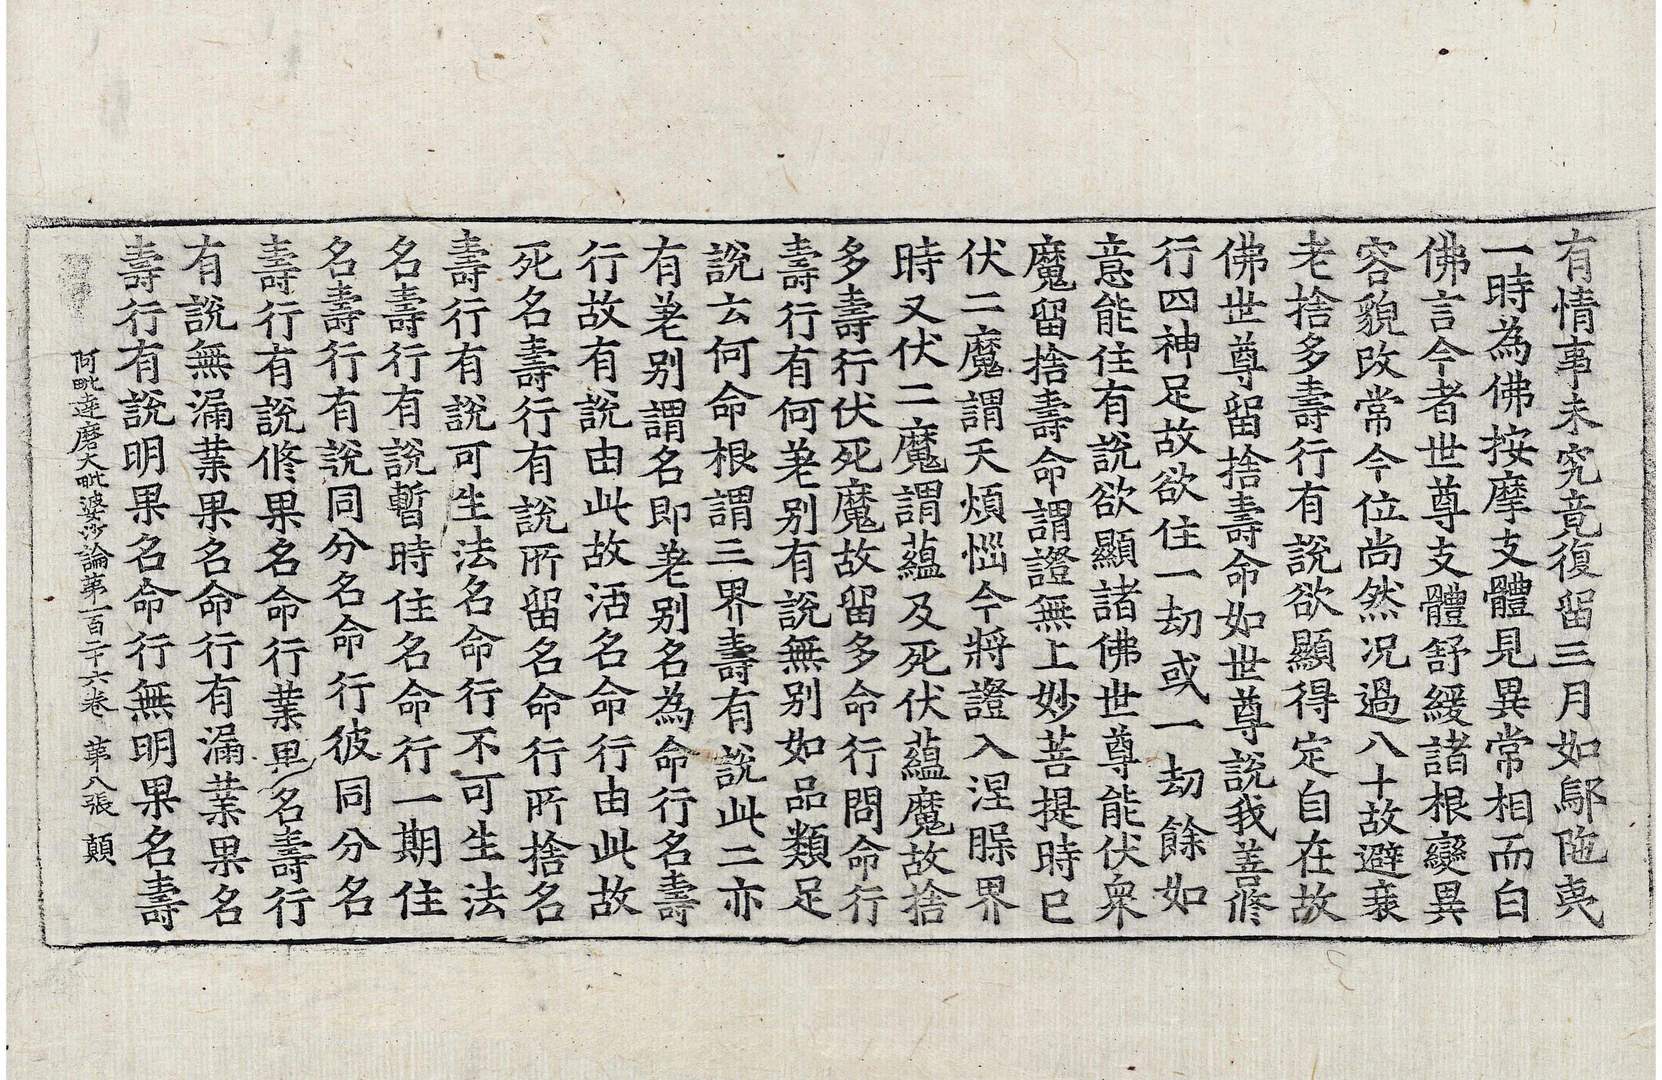 有情事未究竟復留三月如鄔陁夷
一時為佛按摩支體見異常相而白
佛言今者世尊支體舒緩諸根變異
容貌改常今位尚然况過八十故避衰
老捨多壽行有說欲顯得定自在故
佛世尊留捨壽命如世尊說我善修
行四神足故欲住一劫或一劫餘如
意能住有說欲顯諸佛世尊能伏衆
魔留捨壽命謂證無上妙菩提時已
伏二魔謂天煩惱今將證入涅槃界
時又伏二魔謂蘊及死伏蘊魔故捨
多壽行伏死魔故留多命行問命行
壽行有何差别有說無别如品類足
說云何命根謂三界壽有說此二亦
有差别謂名即差别名為命行名壽
行故有說由此故活名命行由此故
死名壽行有說所留名命行所捨名
壽行有說可生法名命行不可生法
名壽行有說暫時住名命行一期住
名壽行有說同分名命行彼同分名
壽行有說修果名命行業果名壽行
有說無漏業果名命行有漏業果名
壽行有說明果名命行無明果名壽
阿毗達磨大毗婆沙論第一百二十六卷 第八張 顛